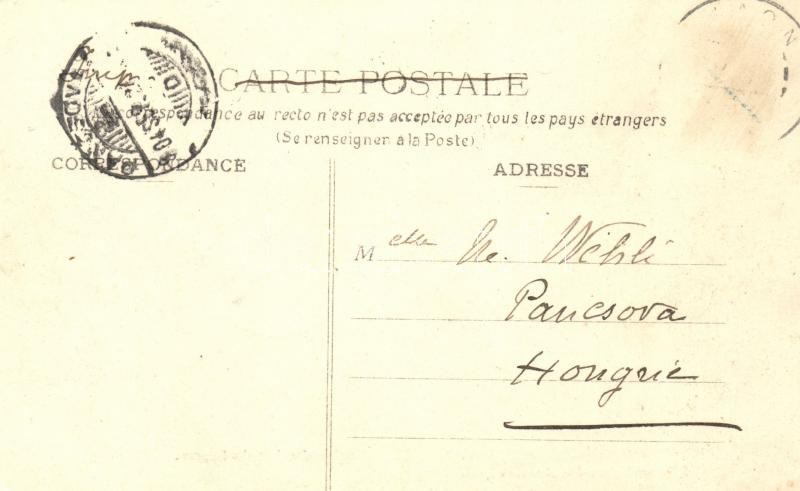 CARTE POSTALE
La Correspondance au recto n'est pas acceptée par tous les pays étrangers
(Se renseigner à la Poste)
CORRESPONDANCE
ADRESSE
Melle Wehli
Pancsova
Hongrie